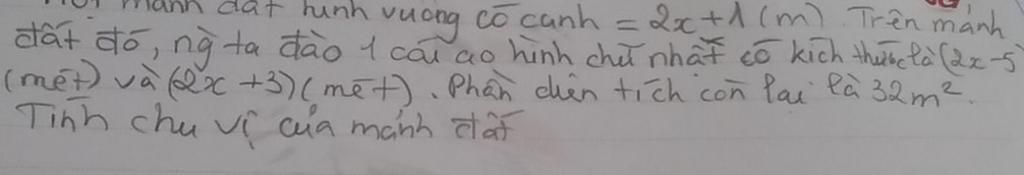 mảnh đất hình vuông có cạnh = 2x+1 (m). Trên mảnh
đất đó, ng ta đào 1 cái ao hình chữ nhật có kích thước là (2x-5)
(mét) và (2x+3)(mét). Phần diện tích còn lại là 32m².
Tính chu vi của mảnh đất